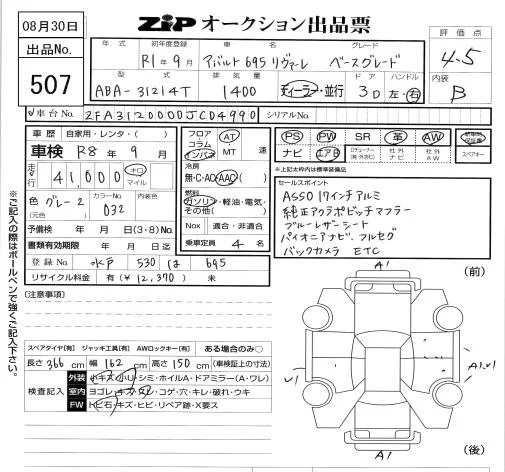 08月30日
ZiP オークション出品票
出品No.
507
年式 初年度登録 車名 グレード
R1年9月 アバルト695リヴァーレ ベースグレード
評価点
4.5
型式 排気量 ドア ハンドル
ABA-31214T 1400 ディーラー・並行 3D 左・右
内装
B
車台No. ZFA3120000JC04990 シリアルNo.
車歴 自家用・レンタ・( )
車検 R8年9月
走行 41,000 キロ マイル
色 グレー2 (元色) カラーNo. 032
予備検 年 月 日(3・8)No.
書類有効期限 年 月 日迄
登録No. 水戸 530 は 695
リサイクル料金 有(¥12,370) 未
フロア・コラム インパネ AT・MT 速
冷房 無・C・AC・AAC
燃料 ガソリン・軽油・電気・その他( )
Nox 適合・非適合
乗車定員 4名
PS PW SR 革 AW
ナビ エアB Dチューナー (純・外含む) 社外ナビ 社外AW スペアキー
※上記太枠内は標準装備品
セールスポイント
ASSO 17インチアルミ
純正アクラポビッチマフラー
ブルーレザーシート
パイオニアナビ、フルセグ
バックカメラ ETC
(注意事項)
スペアタイヤ[有] ジャッキ工具[有] AWロックキー[有] ある場合のみ○
長さ 366cm 幅 162cm 高さ 150cm (車検証上の寸法)
検査記入
外装 小キズ・小U・シミ・ホイルA・ドアミラー(A・ワレ)
室内 ヨゴレ・キズ・スレ・コゲ・穴・キレ・破れ・ウキ
FW トビ石・キズ・ヒビ・リペア跡・X要ス
A1
(前)
U1
A1
(後)
※ご記入の際はボールペンで強くご記入下さい。